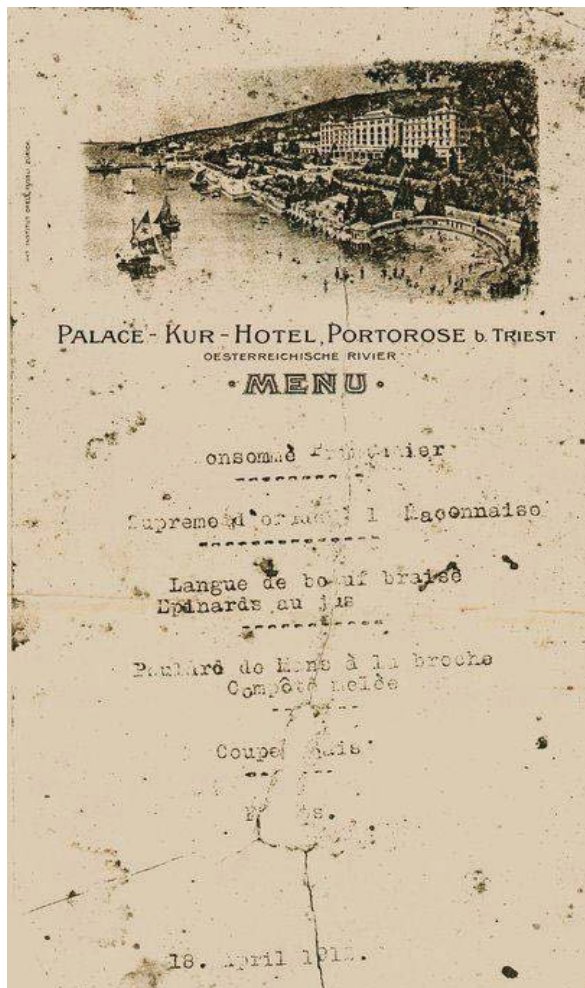 PALACE - KUR - HOTEL, PORTOROSE b. TRIEST
OESTERREICHISCHE RIVIER
• MENU •
onsommé
Supreme
Langue de bœuf braisé
Epinards au jus
de Mans à la broche
Compôte melée
Coupe
18. April